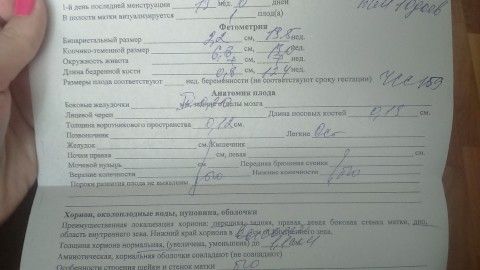 1-й день последней менструации 13 нед. 0 дней
В полости матки визуализируется 1 плод(а)
Фетометрия
Бипариетальный размер 2,2 см, 13,5 нед.
Копчико-теменной размер 6,8 см, 13,0 нед.
Окружность живота см, нед.
Длина бедренной кости 0,8 см, 12,4 нед.
Размеры плода соответствуют нед. беременности (не соответствуют сроку гестации) ЧСС 159
Анатомия плода
Боковые желудочки мозга
Лицевой череп Длина носовых костей 0,19 см.
Толщина воротникового пространства 0,12 см.
Позвоночник Легкие
Желудок см. Кишечник
Почки правая см, левая см.
Мочевой пузырь см. Передняя брюшная стенка
Верхние конечности б/о Нижние конечности б/о
Пороки развития плода не выявлены
Хорион, околоплодные воды, пуповина, оболочки
Преимущественная локализация хориона: передняя, задняя, правая, левая боковая стенка матки, дно,
область внутреннего зева. Нижний край хориона в внутреннего зева.
Толщина хориона нормальная, (увеличена, уменьшена) до
Амниотическая, хориальная оболочки совпадают (не совпадают)
Особенности строения шейки и стенок матки б/о